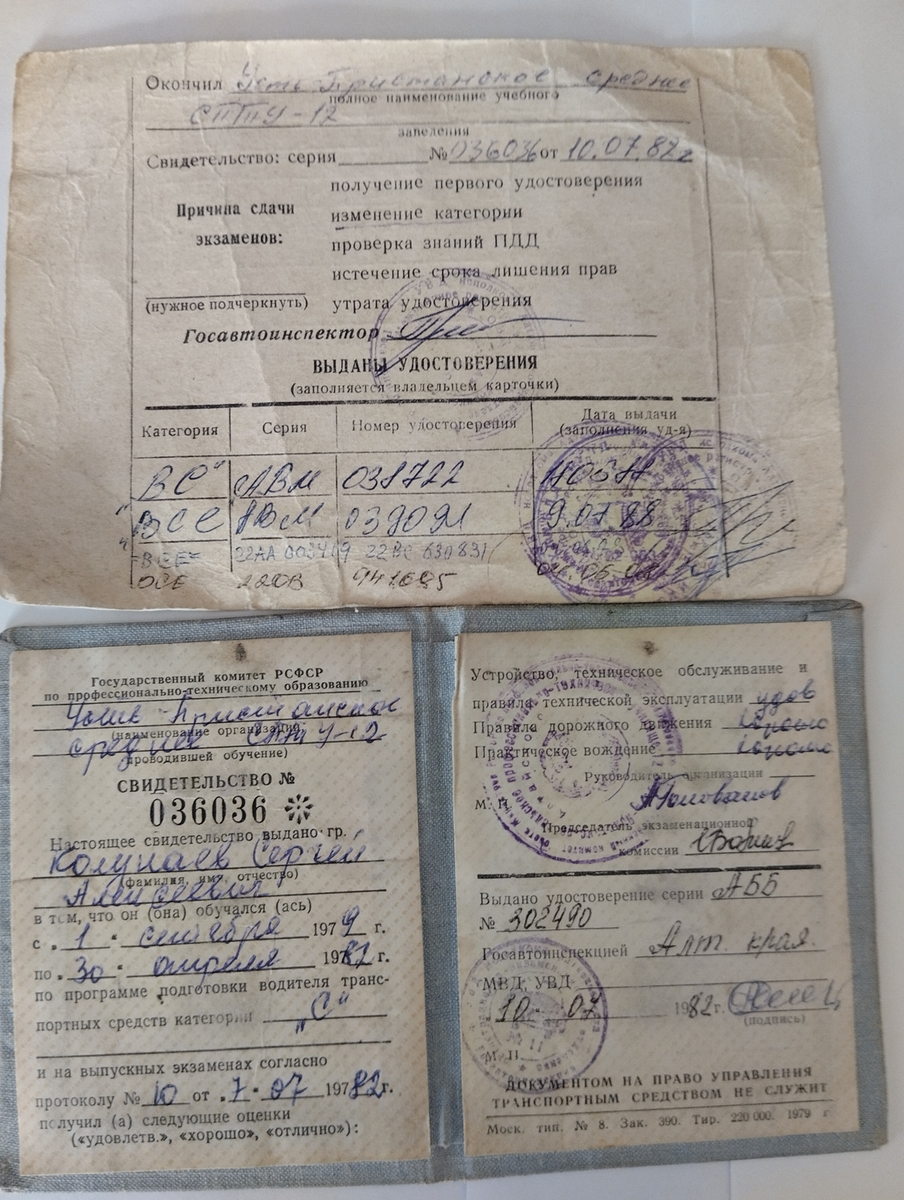 Окончил Усть-Пристанское среднее
полное наименование учебного
СПТУ-12
заведения
Свидетельство: серия № 036036 от 10.07.82 г
Причина сдачи экзаменов:
(нужное подчеркнуть)
получение первого удостоверения
изменение категории
проверка знаний ПДД
истечение срока лишения прав
утрата удостоверения
Госавтоинспектор
ВЫДАНЫ УДОСТОВЕРЕНИЯ
(заполняется владельцем карточки)
Категория Серия Номер удостоверения Дата выдачи (заполнения уд-я)
"ВС" АВМ
"ВСЕ" АВМ 9.07.88
"ВСЕ"
ВСЕ 22ОВ
Государственный комитет РСФСР
по профессионально-техническому образованию
Усть-Пристанское
(наименование организации,
среднее СПТУ-12
проводившей обучение)
СВИДЕТЕЛЬСТВО №
036036
Настоящее свидетельство выдано гр.
Колупаев Сергей
(фамилия, имя, отчество)
Алексеевич
в том, что он (она) обучался (ась)
с „1" сентября 1979 г.
по „30" апреля 1982 г.
по программе подготовки водителя транс-
портных средств категории „С"
и на выпускных экзаменах согласно
протоколу № 10 от 7.07 1982 г.
получил (а) следующие оценки
(«удовлетв.», «хорошо», «отлично»):
Устройство, техническое обслуживание и
правила технической эксплуатации удов
Правила дорожного движения хорошо
Практическое вождение хорошо
Руководитель организации
М. П.
Председатель экзаменационной
комиссии
Выдано удостоверение серии АББ
№ 302490
Госавтоинспекцией Алт. края.
МВД, УВД
10 - 07 1982 г.
(подпись)
М. П.
ДОКУМЕНТОМ НА ПРАВО УПРАВЛЕНИЯ
ТРАНСПОРТНЫМ СРЕДСТВОМ НЕ СЛУЖИТ
Моск. тип. № 8. Зак. 390. Тир. 220 000. 1979 г.